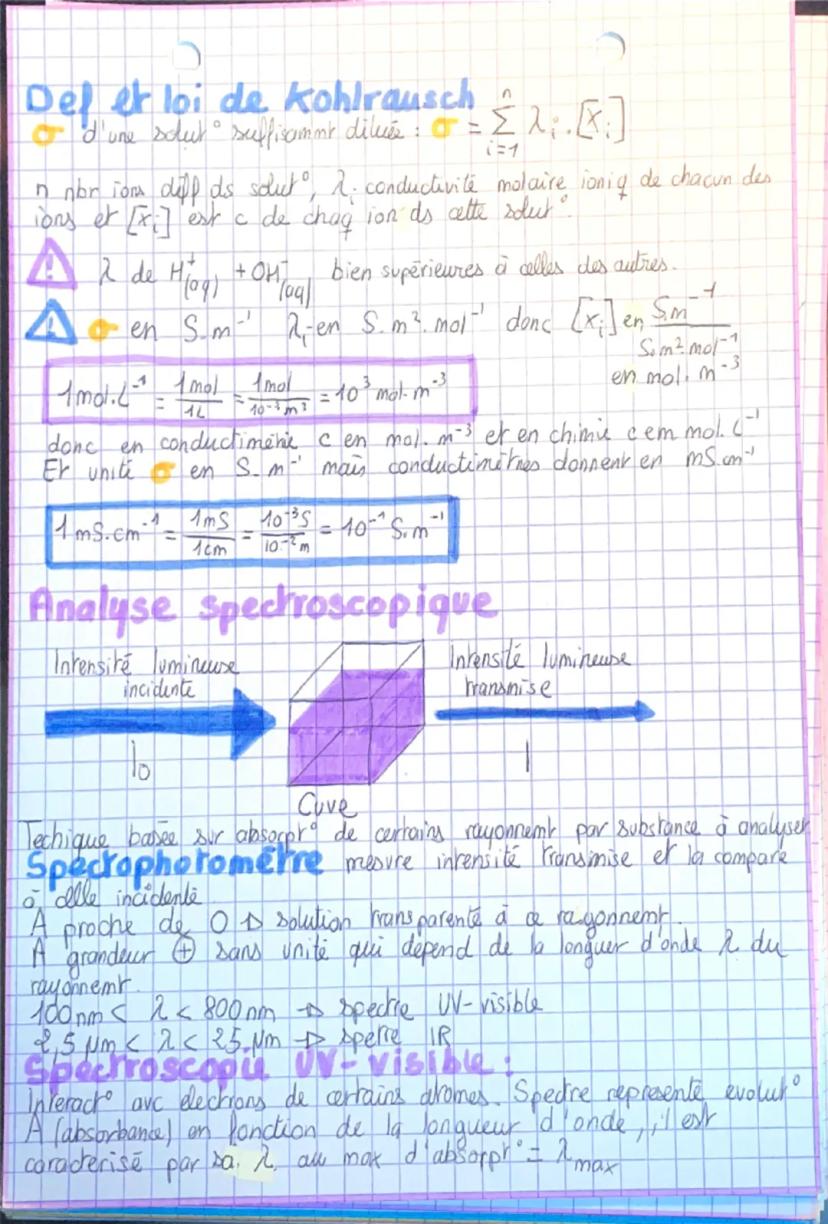 Def et loi de Kohlrausch
σ d'une solut° suffisammt diluée : σ = Σ λi . [Xi]
n
i=1
n nbr ions diff ds solut°, λi conductivité molaire ioniq de chacun des
ions et [Xi] est c de chaq ion ds cette solut°.
⚠ λ de H+(aq) + OH-(aq) bien supérieures à celles des autres.
⚠ σ en S.m⁻¹ λi en S.m².mol⁻¹ donc [Xi] en S.m⁻¹ / S.m².mol⁻¹
en mol.m⁻³
1mol.L⁻¹ = 1mol/1L = 1mol/10⁻³m³ = 10³ mol.m⁻³
donc en conductimétrie c en mol.m⁻³ et en chimie c em mol.L⁻¹
Et unité σ en S.m⁻¹ mais conductimètres donnent en mS.cm⁻¹
1mS.cm⁻¹ = 1mS/1cm = 10⁻³S/10⁻²m = 10⁻¹ S.m⁻¹
Analyse spectroscopique
Intensité lumineuse
incidente
I0
Cuve
Intensité lumineuse
transmise
I
Techique basée sur absorpt° de certains rayonnemt par substance à analyser
Spectrophotomètre mesure intensité transimise et la compare
à celle incidente
A proche de 0 → solution transparente à ce rayonnemt.
A grandeur ⊕ sans unité qui dépend de la longuer d'onde λ du
rayonnemt.
100nm < λ < 800nm → spectre UV-visible
2,5 μm < λ < 25 μm → spetre IR
Spectroscopie UV-visible :
Interact° avc électrons de certains atomes. Spectre représente évolut°
A (absorbance) en fonction de la longueur d'onde, il est
caractérisé par sa λ au max d'absorpt° = λmax